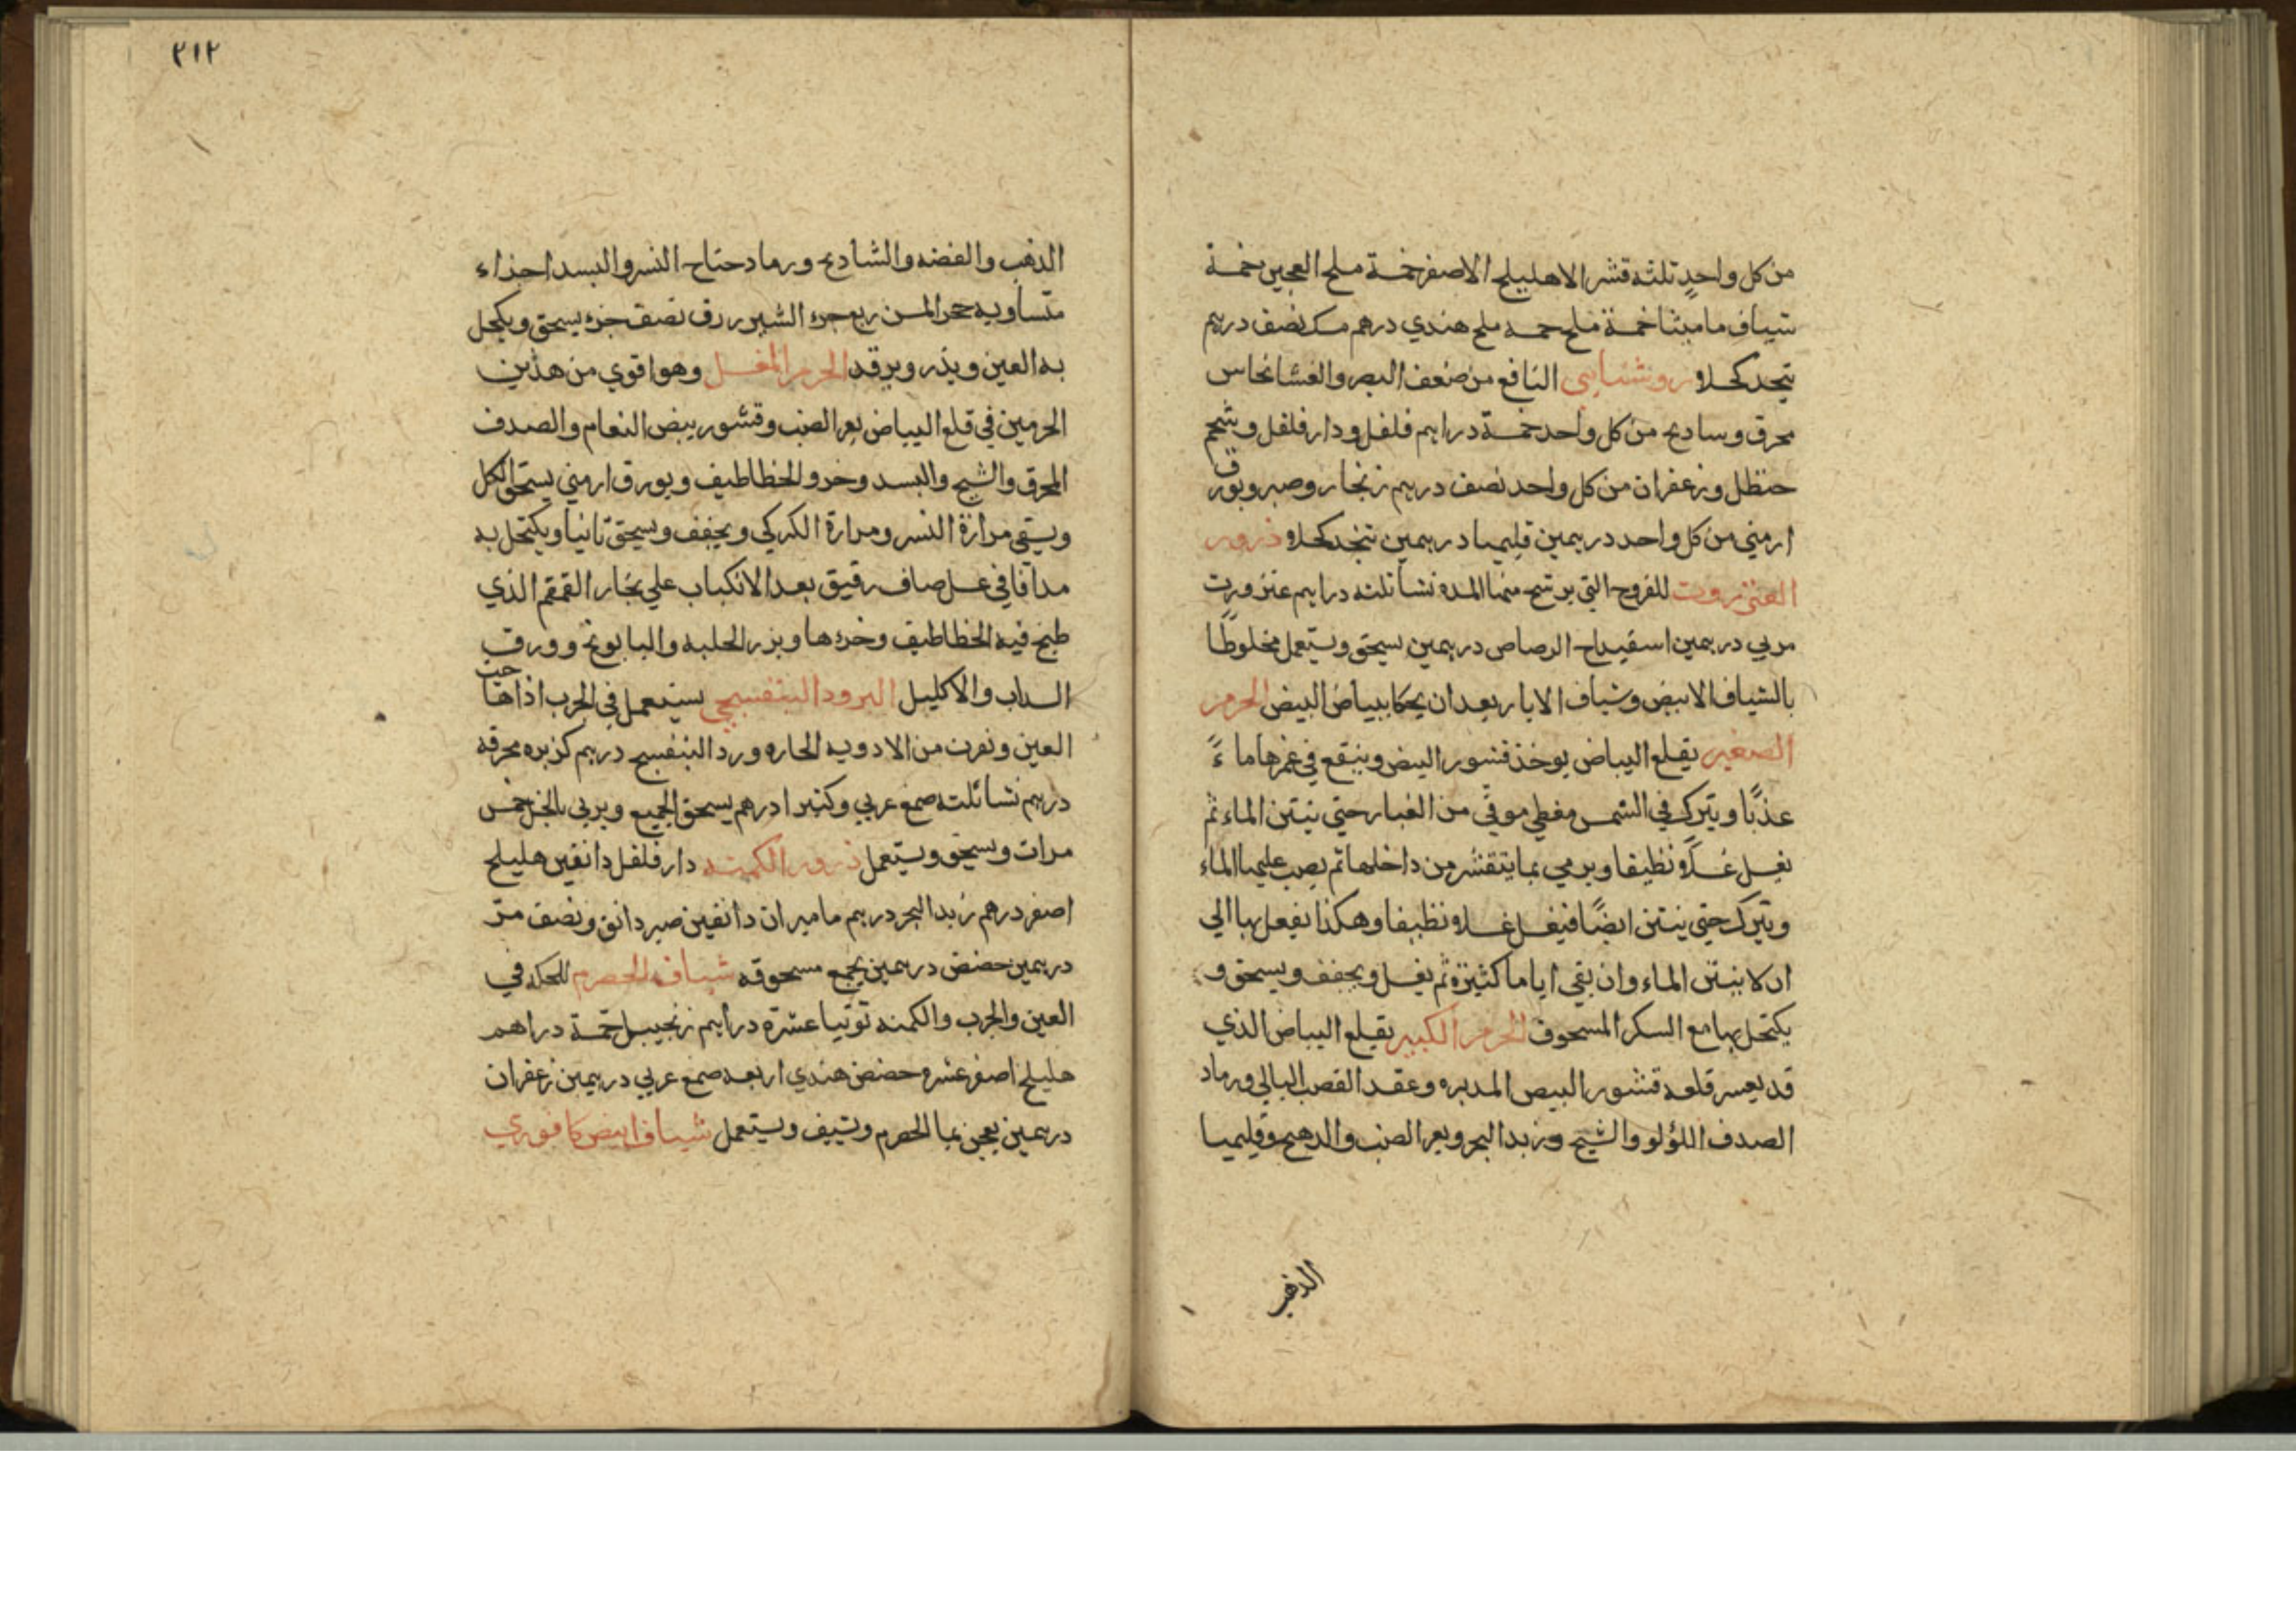 من كل واحدٍ ثلثه قشر الاهليلج الاصفر خمسة ملح العجين خمسة
شياف ماميثا خمسة ملح هندي درهم مسك نصف درهم
يتخذ كحلا روشنايى النافع من ضعف البصر والغشا نحاس
محرق وسادج من كل واحد خمسة دراهم فلفل ودار فلفل وشحم
حنظل وزعفران من كل واحد نصف درهم زنجار وصبر وبورق
ارمني من كل واحد درهمين قليميا درهمين يتخذ كحلا ذرور
العنزروت للقروح التي يرشح منها المده نشا ثلثه دراهم عنزروت
مربي درهمين اسفيداج الرصاص درهمين يسحق ويستعمل مخلوطًا
بالشياف الابيض وشياف الابار بعد ان يحكا ببياض البيض الحرمز
الصغير يقلع البياض يوخذ قشور البيض وينقع في غمرها ماءً
عذبًا ويترك في الشمس مغطي موقي من الغبار حتي ينتن الماء ثم
يغسل غسلًا نظيفا ويرمي بما يتقشر من داخلها ثم يصب عليها الماء
ويترك حتي ينتن ايضًا فيغسل غسلا نظيفا وهكذا يفعل بها الي
ان لا ينتن الماء وان بقي اياما كثيرة ثم يغسل ويجفف ويسحق و
يكتحل بها مع السكر المسحوق الحرمز الكبير يقلع البياض الذي
قد يعسر قلعه قشور البيض المدبره وعقد القصب البالي ورماد
الصدف اللؤلو والشيح وزبد البحر وبعر الضب والدهنج وقليميا
الذهب
٢١٢
الذهب والفضه والشادنج ورماد جناح النسر والبسد اجزاء
متساويه حجر المسن ربع جزء الشبرزدق نصف جزء يسحق ويكحل
به العين ويذر ويرقد الحرمز المغسل وهو اقوي من هذين
الحرمزين في قلع البياض بعر الضب وقشور بيض النعام والصدف
المحرق والشيح والبسد وخرو الخطاطيف وبورق ارمني يسحق الكل
ويسقي مرارة النسر ومرارة الكركي ويجفف ويسحق ثانيا ويكتحل به
مدافا في عسل صاف رقيق بعد الانكباب علي بخار القمقم الذي
طبخ فيه الخطاطيف وخرءها وبزر الحلبه والبابونج وورق
السداب والاكليل البرود البنفسجي يستعمل في الجرب اذا هاجت
العين ونفرت من الادويه الحاره ورد البنفسج درهم كزبره محرقه
درهم نشا ثلثه صمغ عربي وكثيرا درهم يسحق الجميع ويربي بالخل خمس
مرات ويسحق ويستعمل ذرور الكمنه دار فلفل دانقين هليلج
اصفر درهم زبد البحر درهم ماميران دانقين صبر دانق ونصف مر
درهمين حضض درهمين يجمع مسحوقه شياف الحصرم للحكه في
العين والجرب والكمنه توتيا عشرة دراهم زنجبيل خمسة دراهم
هليلج اصفر عشره حضض هندي اربعه صمغ عربي درهمين زعفران
درهمين يعجن بما الحصرم ويشيف ويستعمل شياف ابيض كافوري